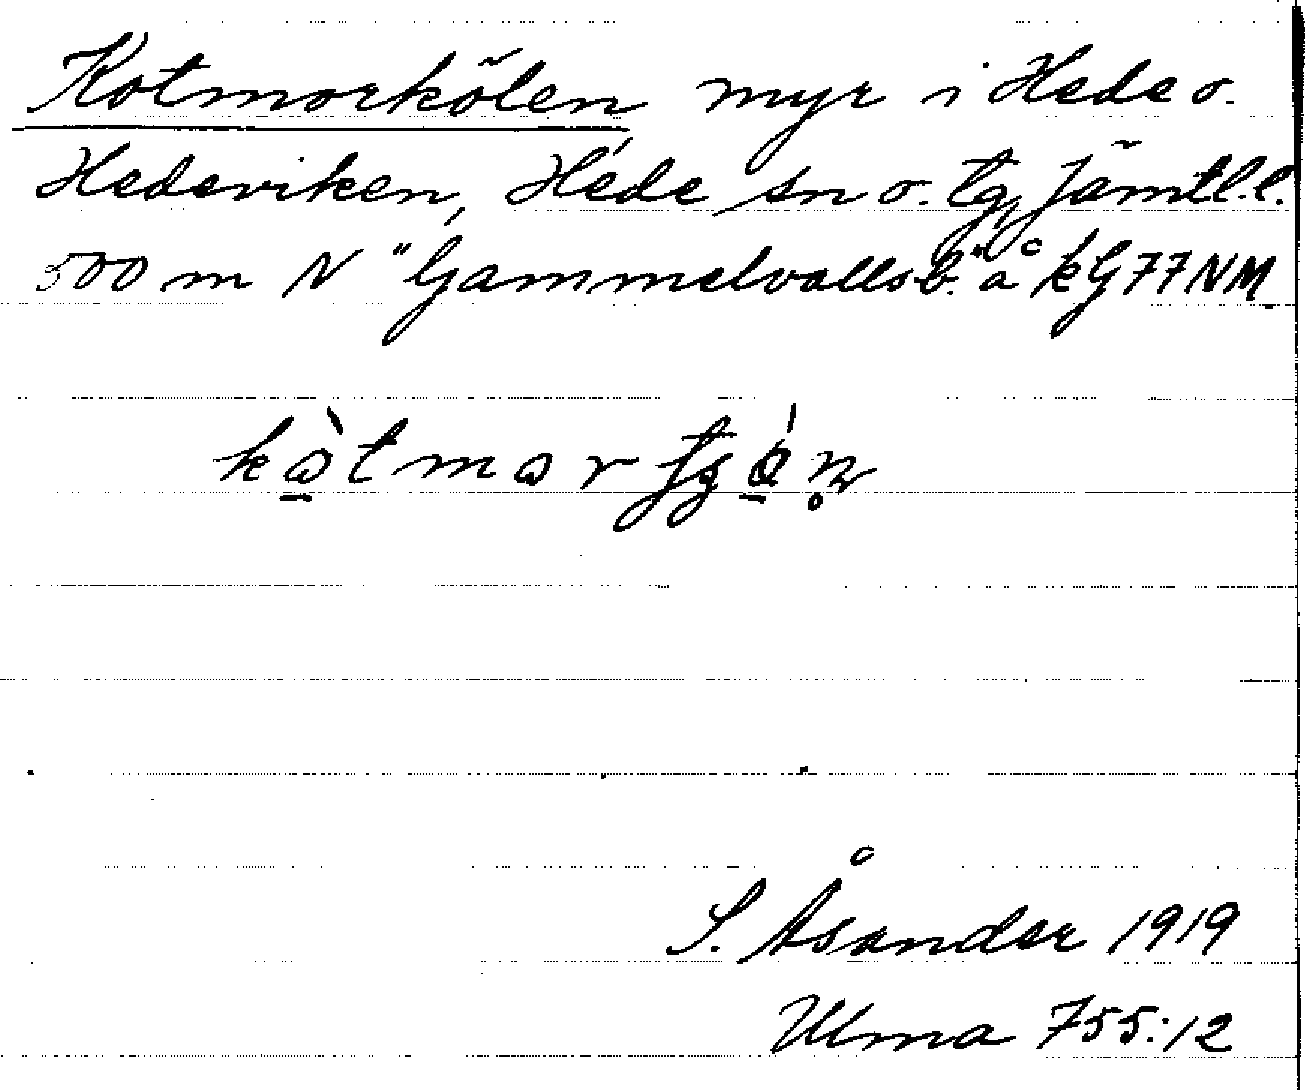 Kotmorkölen myr i Hede o.
Hedeviken, Hede sn o. tg, Jämtl.l.
500 m N "Gammelvallsb." å kG77NM
S. Åsander 1919
Ulma 755:12